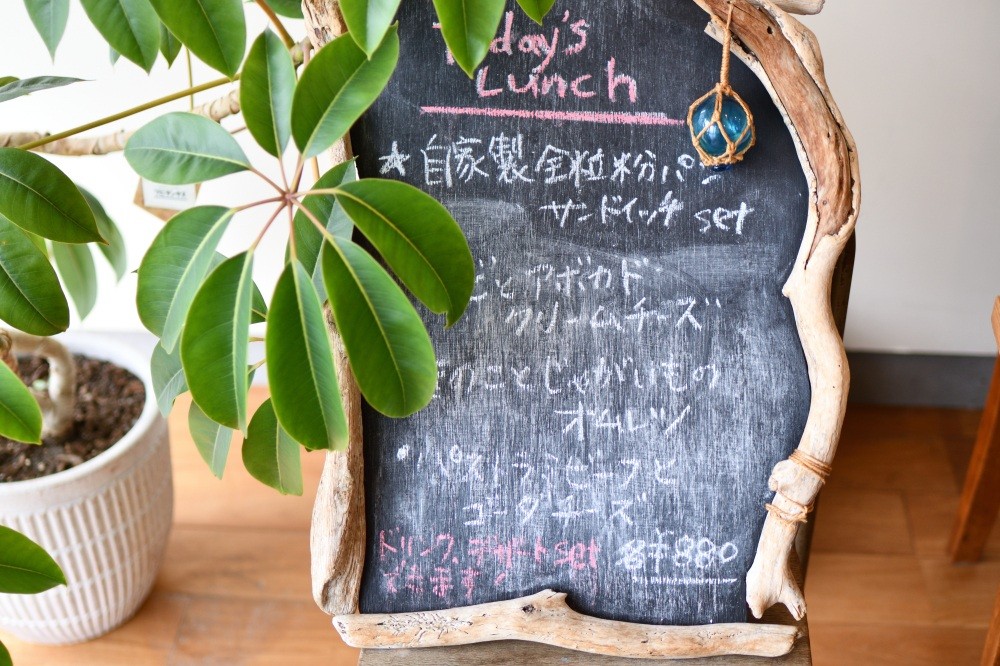 Today's
Lunch
★自家製全粒粉パン
サンドイッチ set
びとアボカド
クリームチーズ
きのことじゃがいもの
オムレツ
・パストラミビーフと
ゴーダチーズ
ドリンク、デザートset
できます!
¥880